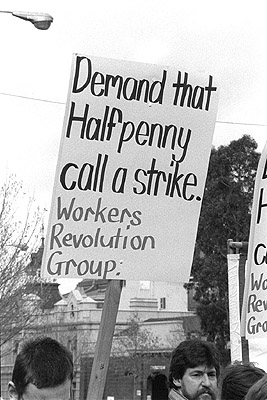 Demand that
Halfpenny
call a strike.
Workers
Revolution
Group: